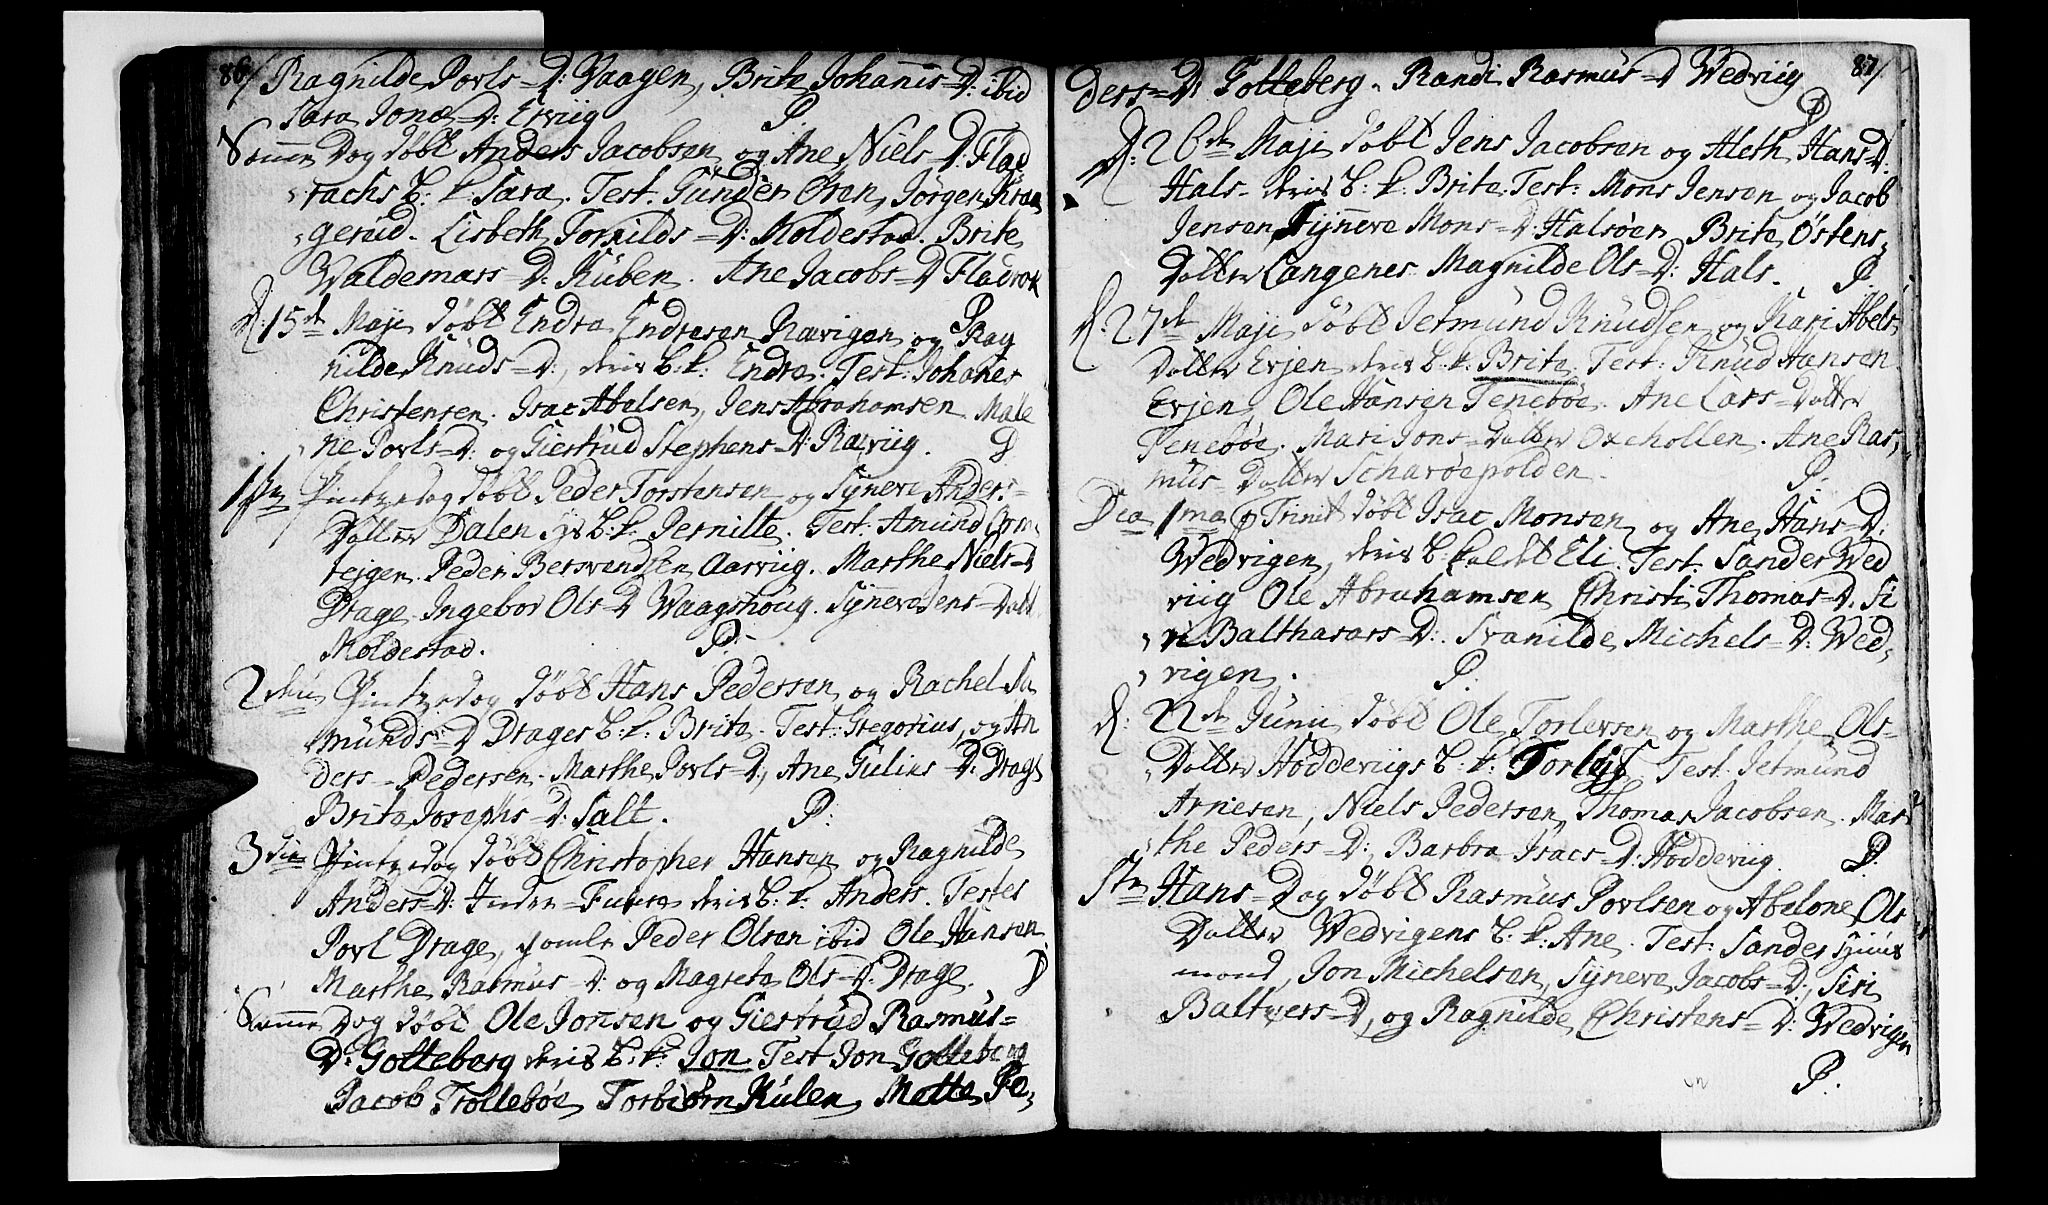 86/ Ragnilde Povls=D: Vaagen, Brite Johanis=D: ibid
Sara Jonæ=D: Erviig P
Samme Dag døbt Anders Jacobsen og Ane Niels=D: Flad
rachs b. k. Sara. Test. Gunder Ören, Jorgen Kraa
gerud. Lisbeth Tornilds=D: Moldestad. Brite
Waldemars=D: Kuben. Ane Jacobs=D Fladrak
P
d: 15de Maji døbt Endre Endresen Rævigen og Rag
nilde Knuds=D:, deris b: k: Endre. Test: Johanes
Christensen. Isac Abelsen, Jens Abrahamsen Male
ne Povls=D: og Giertrud Stephens=D: Ræviig. P
1ste Pintzedag døbt Peder Torstensen og Syneve Anders=
Datter Dalen b: k. Pernille. Test. Amund
tejgen. Peder Bersvendsen Aarviig. Marthe Niels=D
Drage. Ingebor Ols=D Waagshoug. Syneve Jens=Datt
Moldestad. P:
2den Pintzedag døbt Hans Pedersen og Rachel Sa
munds=D Drages b: k: Brite. Test: Gregorius, og An
ders=Pedersen. Marthe Povls=D:, Ane Gulius=D: Drage
Brite Josephs=D: Salt. P:
3die Pintzedag døbt Christopher Hansen og Ragnilde
Anders=D: Indre=Fure deris b: k: Anders. Testes
Povl Drage, gamle Peder Olsen ibid Ole Hansen
Marthe Rasmus=D: og Magrete Ols=D: Drage. P
Samme Dag døbt Ole Jonsen og Giertrud Rasmus=
D: Gotteberg deris b: k: Jon. Test Jon Gotteberg
Jacob Trollebøe Torbiörn Kulen Mette Pe
87/
ders=D: Gotteberg. Randi Rasmus=D Wedviig
P
d: 26de Maji døbt Jens Jacobsen og Aleth Hans=D:
Hals= deris b: k: Brite. Test: Mons Jensen og Jacob
Jensen, Synneve Mons=D: Halsøen, Brite Östens
Datter Langenes Magnilde Ols=D: Hals. P.
d: 27de Maji døbt Jetmund Knudsen og Kari Abels
Datter Erjen deris b: k. Brite. Test: Knud Hansen
Erjen, Ole Hansen Tenebøe. Ane Lars=Datter
Tenebøe. Mari Jons=Datter Oxehollen. Ane Ras
mus=Datter Scharøepolden. P:
Dca 1ma p Trinit døbt Isac Monsen og Ane Hans=D:
Wedvigen, deris b: k: Eli. Test. Sander Wed
viig Ole Abrahamsen Christi Thomas=D. Si
ri Balthasars=D:. Svanilde Michels=D: Wed
vigen. P.
d: 22de Junii døbt Ole Torlevsen og Marthe Ols=
Datter Hoddeviigs b: k: Torlej Test. Jetmund
Arnesen, Niels Pedersen, Thomas Jacobsen. Mar
the Peders=D:, Barbra Isacs=D: Hoddeviig. P.
Ste Hans=Dag døbt Rasmus Povlsen og Abelone Ols
Datter Wedvigens b: k: Ane. Test: Sander
mand, Jon Michelsen, Syneve Jacobs=D:, Siri
Baltzers=D, og Ragnilde Christens=D: Wedvigen
P.